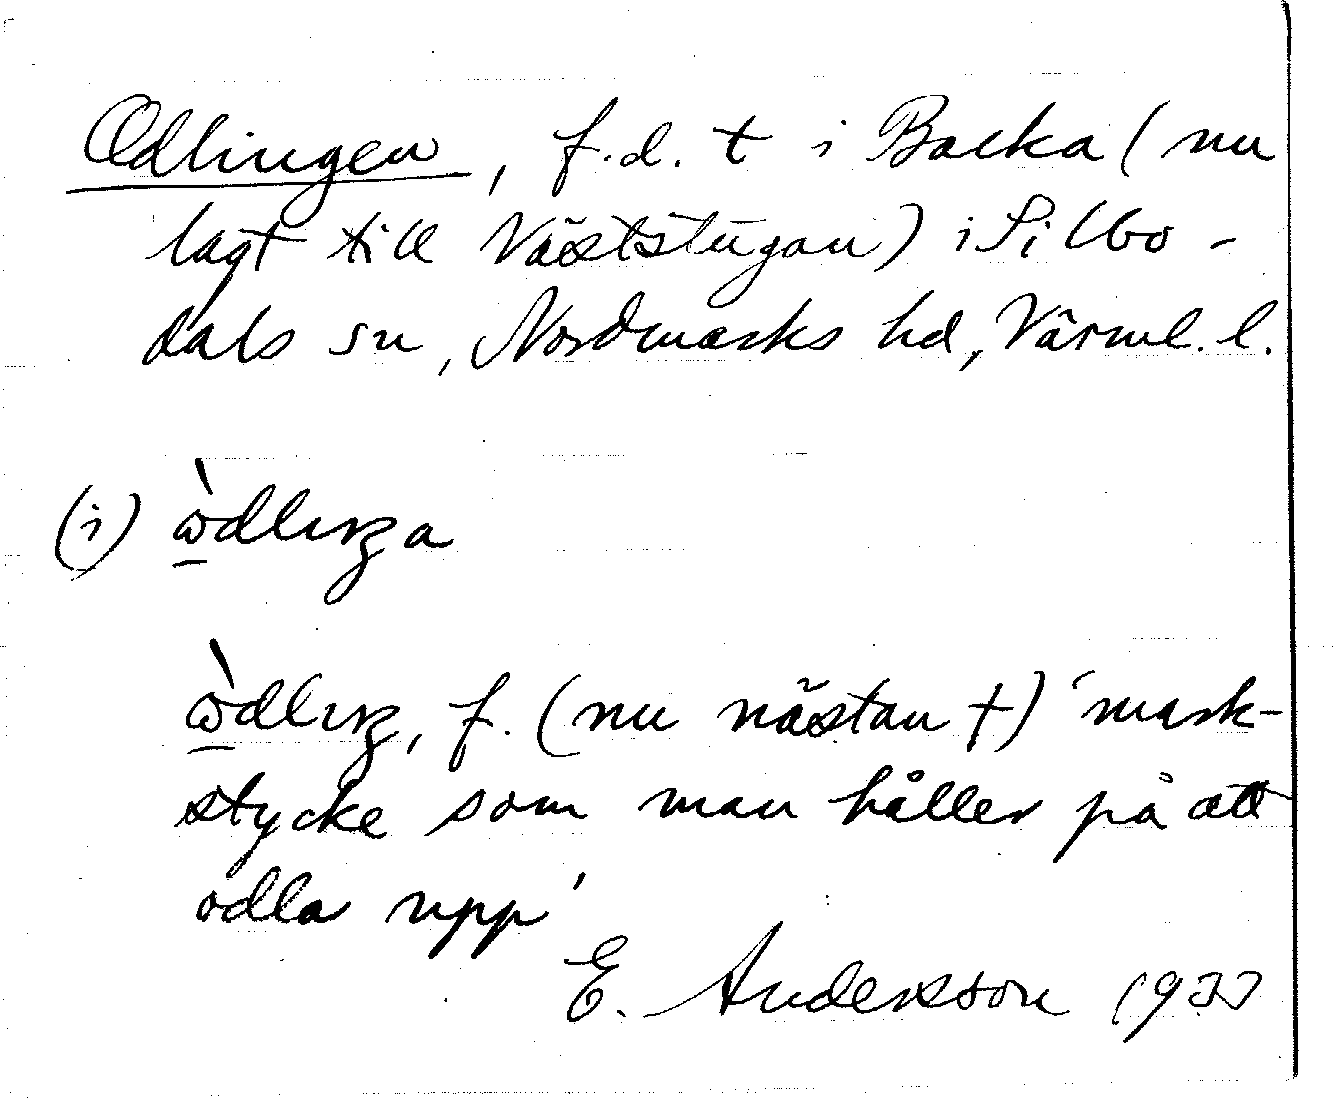 Odlingen, f.d. t i Backa (nu
lagt till Väststugan) i Silbo-
dals sn, Nordmarks hd, Värml. l.
(i) ὼ̲dlıŋa
ὼ̲dlıŋ, f. (nu nästan †) 'mark-
stycke som man håller på att
odla upp'
E. Andersson